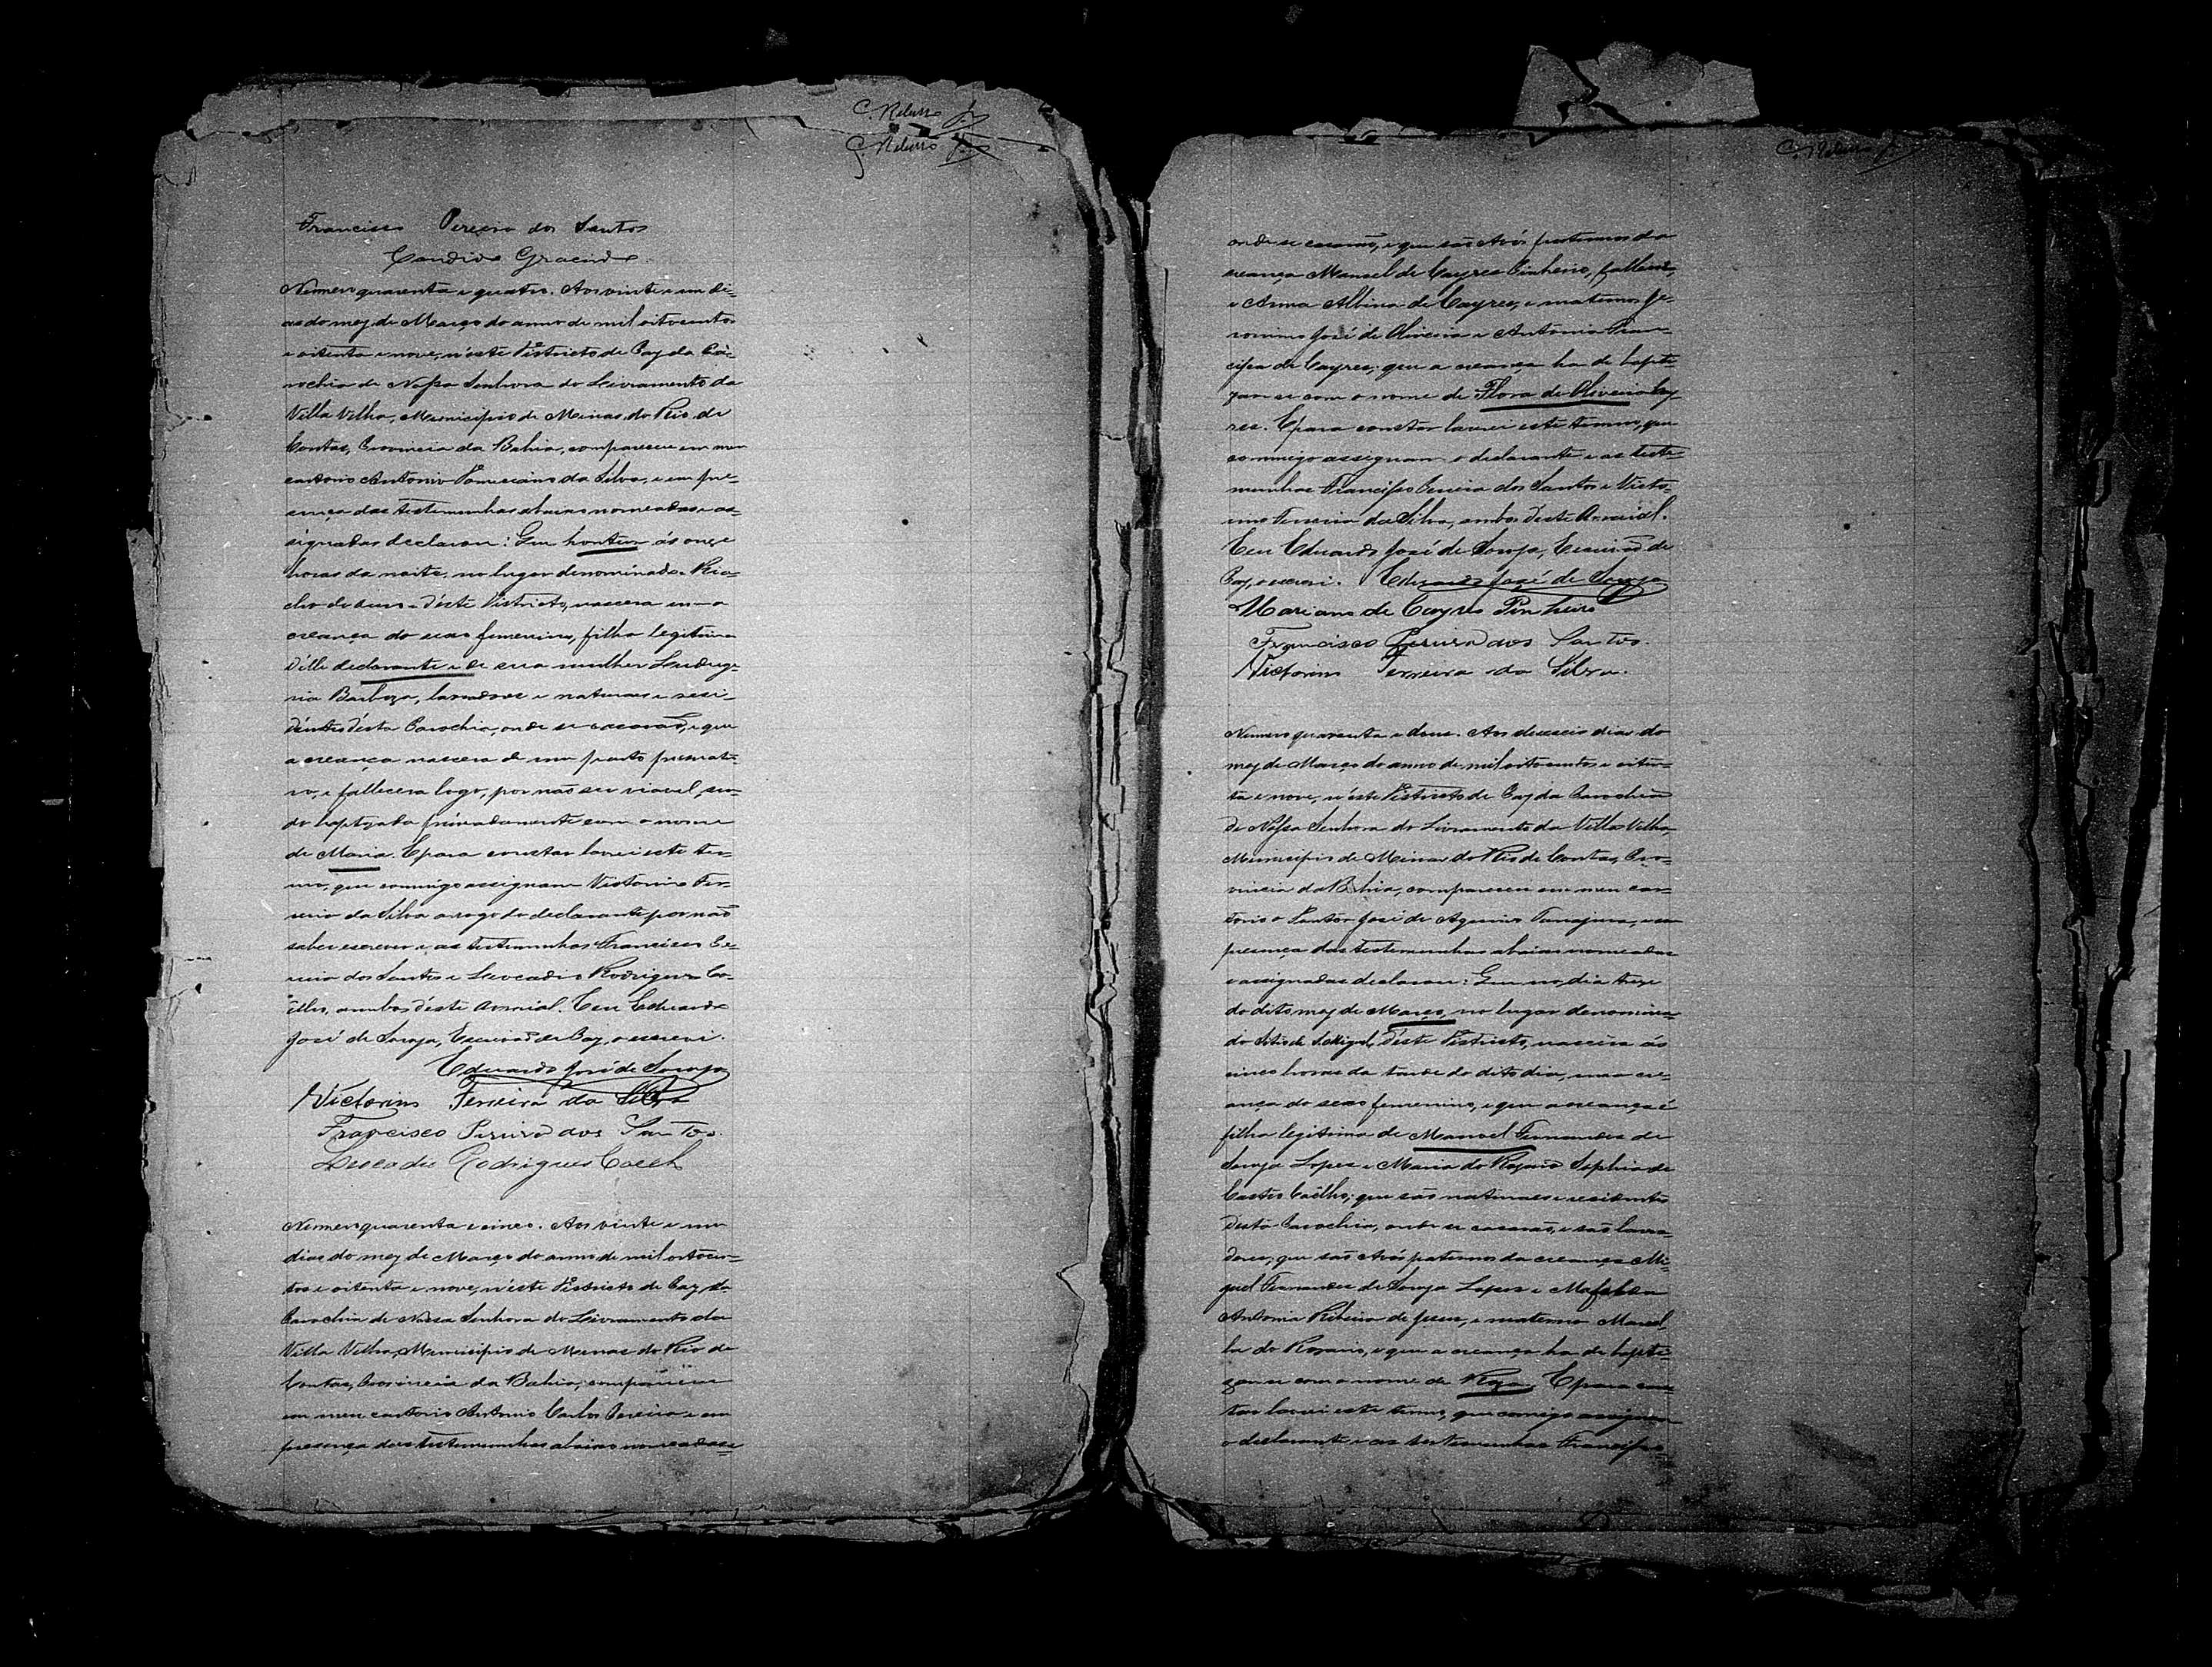 C. Rebello
C. Rebello
Francisco Pereira dos Santos
Candido Gracindo
Numero quarenta e quatro. Aos vinte e um di-
as do mez de Março do anno de mil oitocentos
e oitenta e nove, n'este Districto de Paz da Pa-
rochia de Nossa Senhora do Livramento da
Villa Velha, Municipio de Minas do Rio de
Contas, Provincia da Bahia, compareceu em meu
cartorio Antonio da Silva, e em pre-
sença das testemunhas abaixo nomeadas e as-
signadas declarou: Que hontem ás onze
horas da noite, no lugar denominado Ria-
cho d'este Districto, nascera uma
creança do sexo femenino, filha legitima
d'elle declarante e de sua mulher
Barboza, lavradores e naturaes e resi-
dentes d'esta Parochia, onde se casarão, e que
a creança nascera de um parto prematu-
ro, e fallecera logo, por não ser viavel, sen-
do baptizada privadamente com o nome
de Maria. E para constar lavrei este ter-
mo, que commigo assignam Victorino Fer-
reira da Silva a rogo do declarante por não
saber escrever e as testemunhas Francisco Pe-
reira dos Santos e Leocadio Rodrigues Co-
êlho, ambos d'este Arraial. Eu Eduardo
José de Souza, Escrivão de Paz, o escrevi.
Eduardo José de Souza
Victorino Ferreira da Silva
Francisco Pereira dos Santos.
Leocadio Rodrigues Coelho
Numero quarenta e cinco. Aos vinte e um
dias do mez de Março do anno de mil oitocen-
tos e oitenta e nove, n'este Districto de Paz da
Parochia de Nossa Senhora do Livramento da
Villa Velha, Municipio de Minas do Rio de
Contas, Provincia da Bahia, compareceu
em meu cartorio Antonio Carlos Pereira e em
presença das testemunhas abaixo nomeadas e
C. Rebello
onde se casarão, e que são Avós paternos da
creança Manoel de Cayres Pinheiro, fallecido,
e Anna Albina de Cayres, e maternos Je-
ronimo José de Oliveira e Antonia Fran-
cisca de Cayres; que a creança ha de bapti-
zar-se com o nome de Flora de Oliveira Cay-
res. E para constar lavrei este termo, que
commigo assignam o declarante e as teste-
munhas Francisco Pereira dos Santos e Victo-
rino Ferreira da Silva, ambos d'este Arraial.
Eu Eduardo José de Souza, Escrivão de
Paz, o escrevi. Eduardo José de Souza
Mariano de Cayres Pinheiro
Francisco Pereira dos Santos.
Victorino Ferreira da Silva.
Numero quarenta e dous. Aos dezeseis dias do
mez de Março do anno de mil oitocentos e oiten-
ta e nove, n'este Districto de Paz da Parochia
de Nossa Senhora do Livramento da Villa Velha,
Municipio de Minas do Rio de Contas, Pro-
vincia da Bahia, compareceu em meu car-
torio o José de Aquino Tanajura, e em
presença das testemunhas abaixo nomeadas
e assignadas declarou: Que no dia treze
do dito mez de Março, no lugar denomina-
do Sitio de d'este Districto, nascera ás
cinco horas da tarde do dito dia, uma cre-
ança do sexo femenino, e que a creança é
filha legitima de Manoel Fernandes de
Souza Lopes e Maria do Rozario Sophia de
Castro Coêlho; que são naturaes e residentes
d'esta Parochia, onde se casarão, e são lavra-
dores; que são Avós paternos da creança Mi-
guel Fernandes de Souza Lopes e Mafalda
Antonia Ribeiro de Jesus, e materna
do Rosario, e que a creança ha de bapti-
zar-se com o nome de Roza. E para cons-
tar lavrei este termo, que comigo assignam
o declarante e as testemunhas Francisco